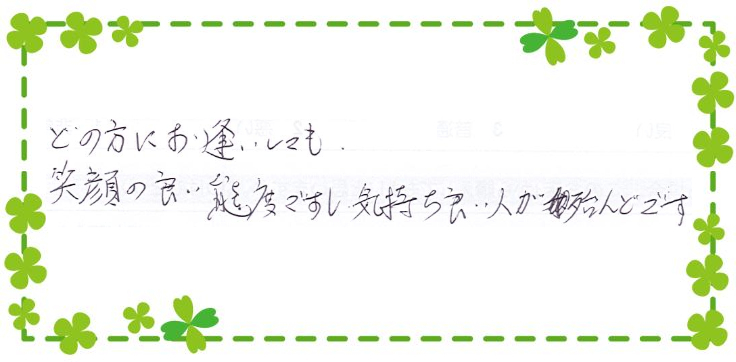 どの方にお逢いしても、
笑顔の良い態度ですし気持ち良い人が殆んどです